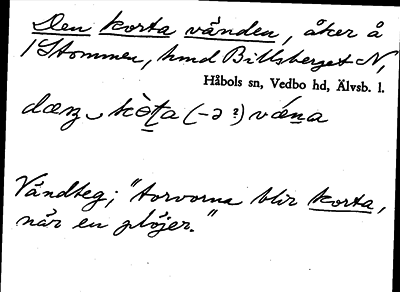 Den korta vänden, åker å
1 Stommen, hmd Billsberget N,
Håbols sn, Vedbo hd, Älvsb. l.
(-ə ?)
Vändteg; "torvorna blir korta,
når en plöjer."